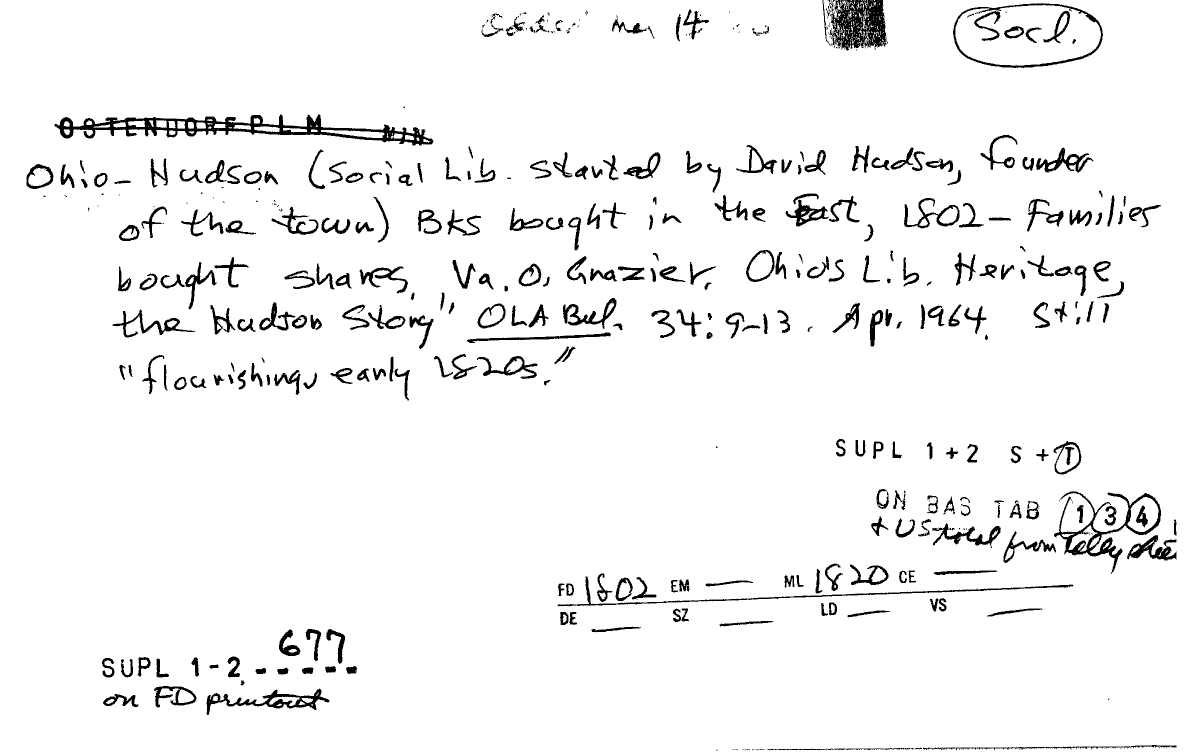 Added Mar 14
Socl.
OSTENDORF P L M MIN
Ohio - Hudson (Social Lib. started by David Hudson, founder
of the town) Bks bought in the East, 1802 - Families
bought shares, Va. O. Grazier. Ohio's Lib. Heritage,
the Hudson Story" OLA Bul. 34: 9-13. Apr. 1964. Still
"flourishing, early 1820s."
SUPL 1+2 S + T
ON BAS TAB 1 3 4
+ US total from Tally
FD 1802 EM — ML 1820 CE —
DE — SZ — LD — VS —
677
SUPL 1-2 - - - - -
on FD printout